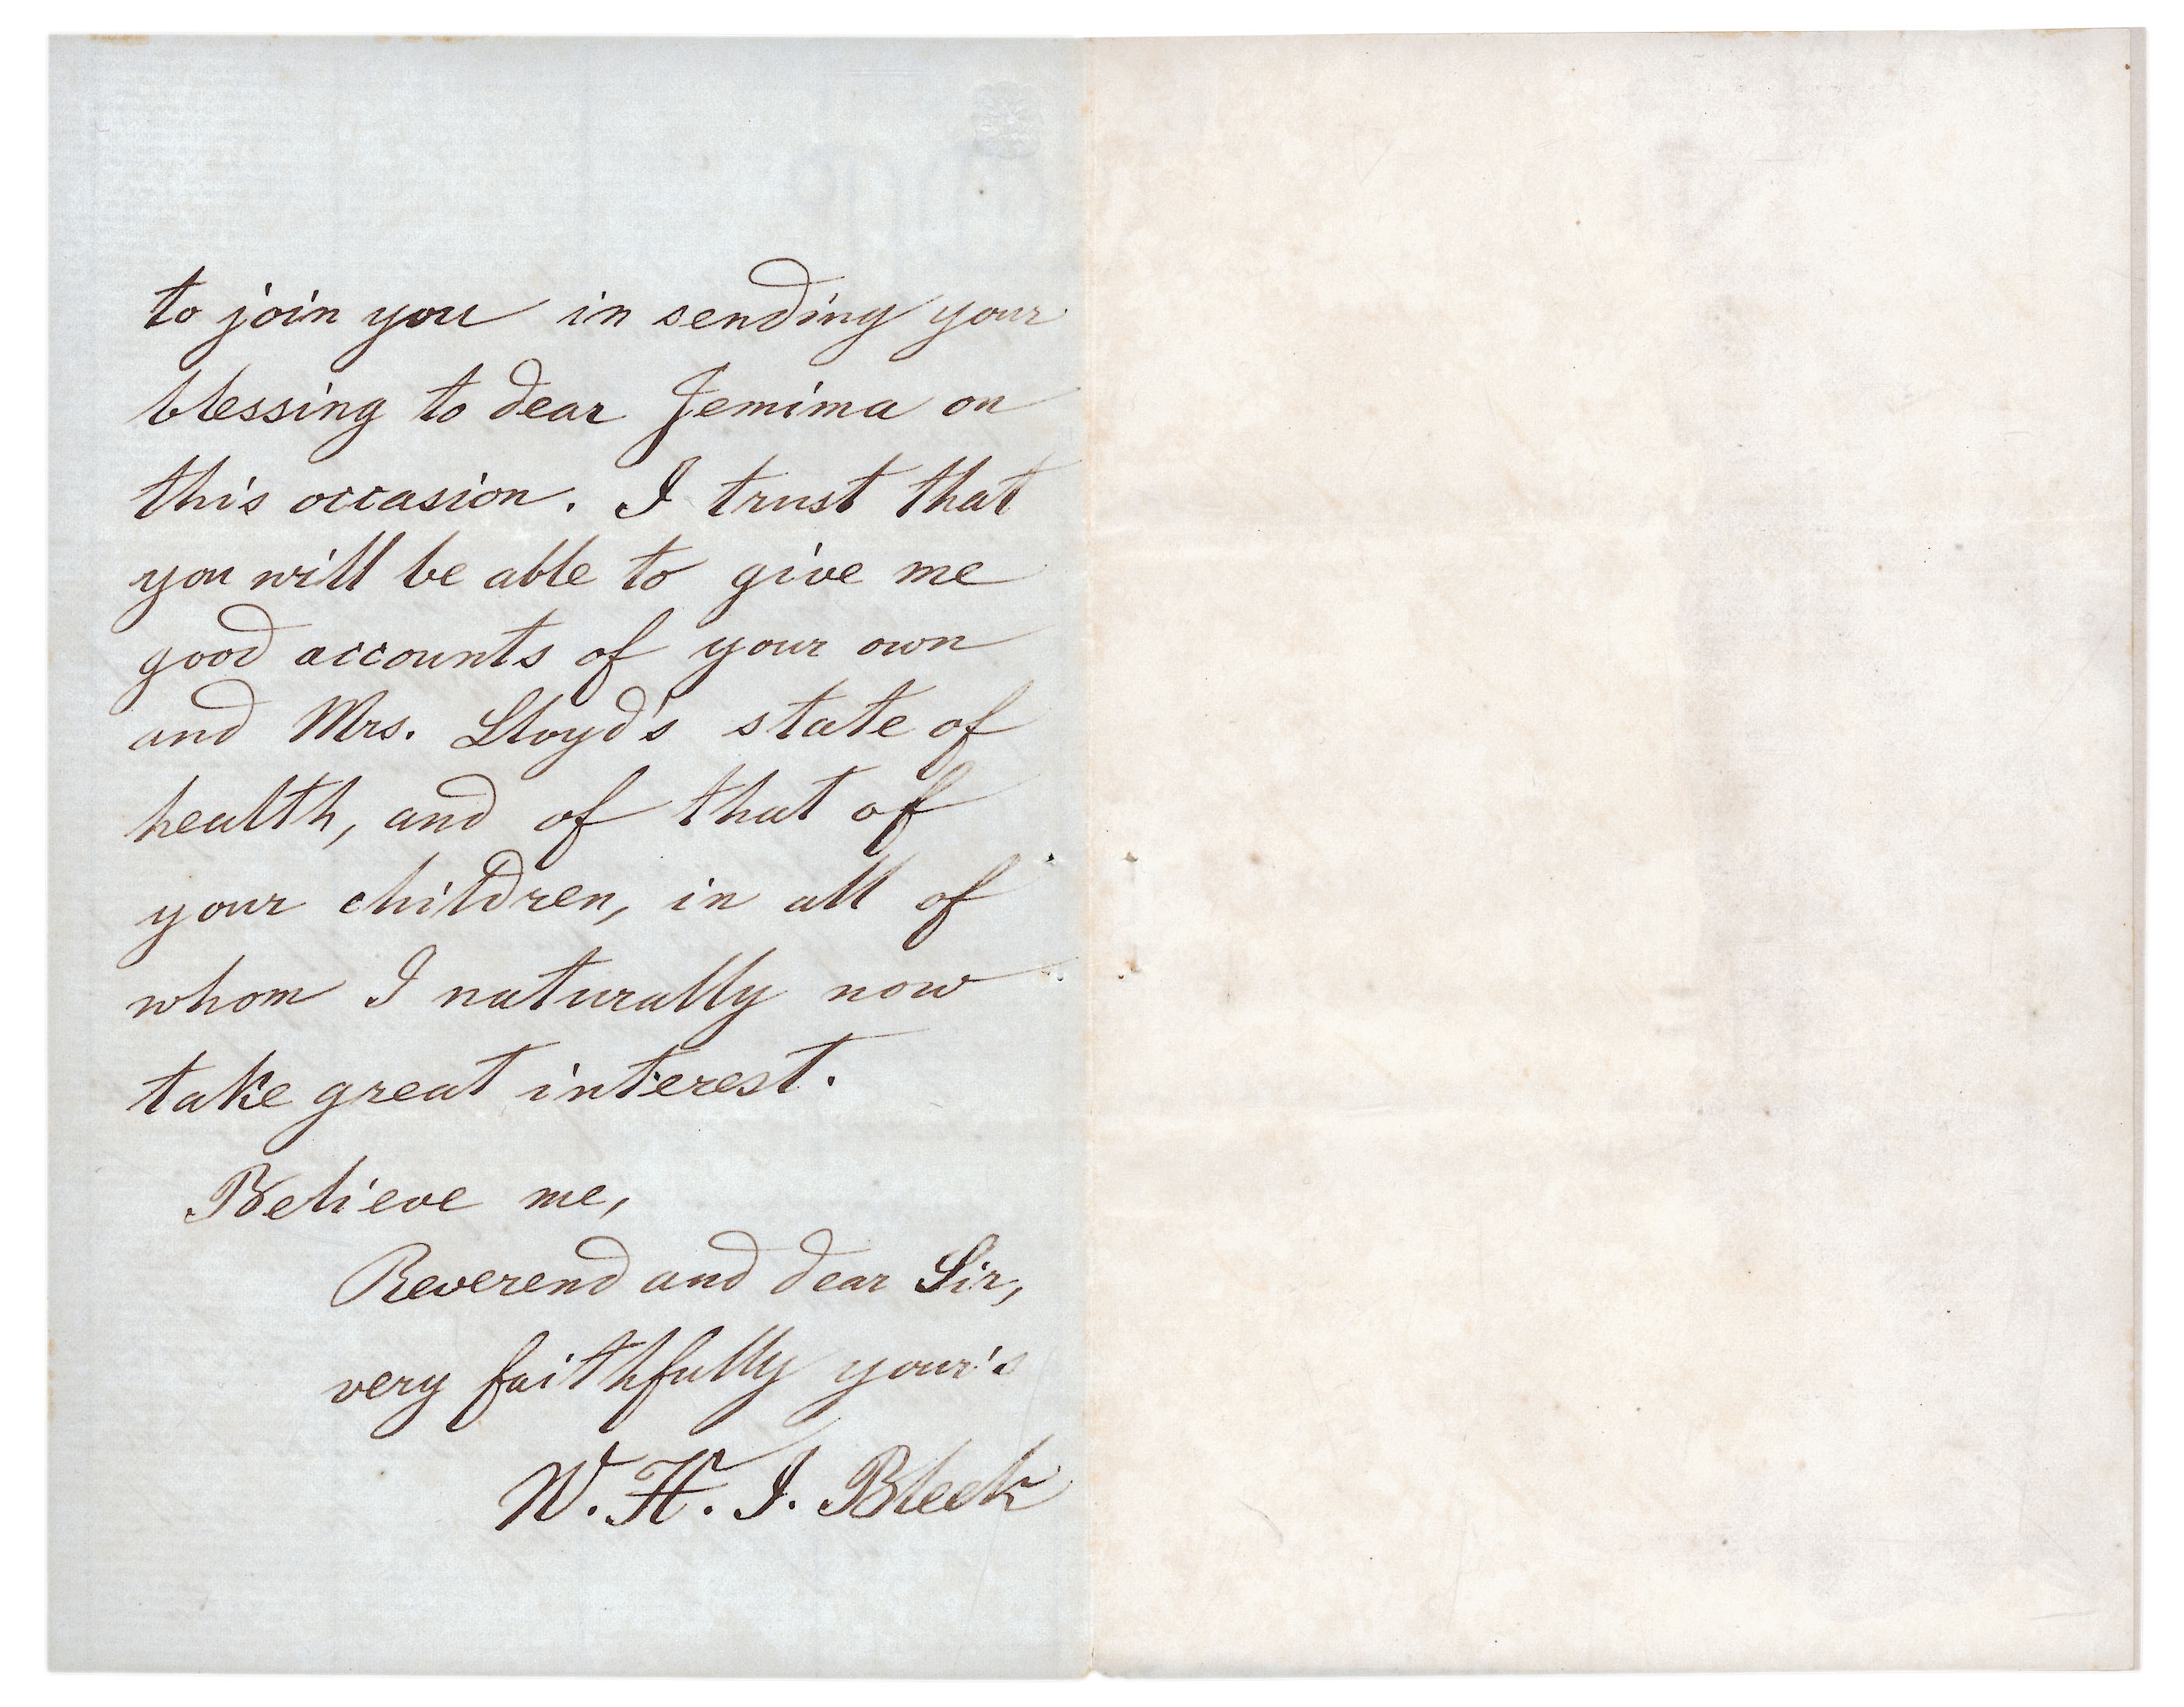 to join you in sending your
blessing to dear Jemima on
this occasion. I trust that
you will be able to give me
good accounts of your own
and Mrs. Lloyd's state of
health, and of that of
your children, in all of
whom I naturally now
take great interest.
Believe me,
Reverend and dear Sir,
very faithfully your's
W. H. I. Bleek